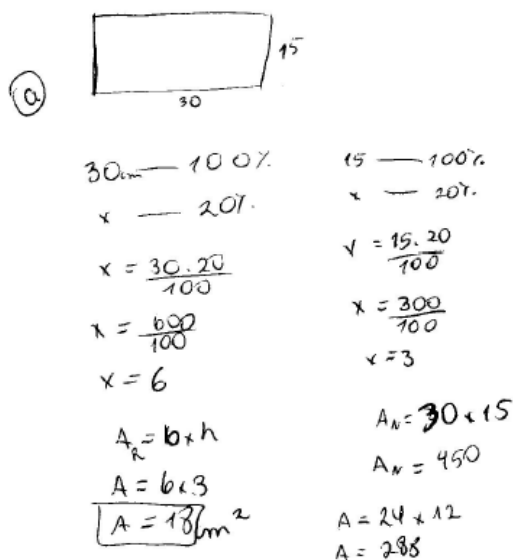 15
a
30
30cm — 100%
x — 20%
x = 30.20
100
x = 600
100
x = 6
A_R = b x h
A = 6 x 3
A = 18 cm²
15 — 100%
x — 20%
x = 15.20
100
x = 300
100
x = 3
A_N = 30 x 15
A_N = 450
A = 24 x 12
A = 288